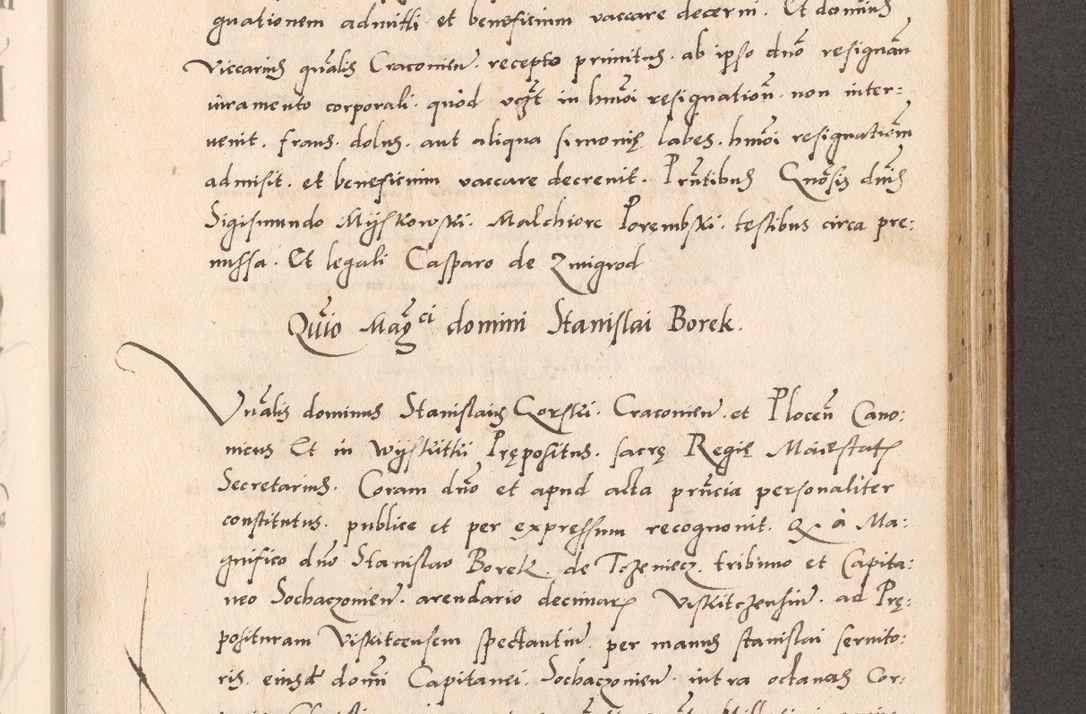 gnationem admitti et beneficium vaccare decerni. Et dominus
Viccarius gnãlis Cracovien̄. recepto primitus. ab ipso dnõ resignan̄
iuramento corporali. quod vtgt in hmõi resignation̄. non inter:
venit. fraus. dolus. aut aliqua simonię labes. hmõi resignation̄
admisit. et beneficium vaccare decrevit. Prñtibus Gnõsis dnis
Sigismundo Myskowski. Malchiore Porembski. testibus circa pre:
missa. Et legali Casparo de Zmigrod
Quit̃o Mag̃ci domini Stanislai Borek.
Vnãlis dominus Stanislaus Gorski. Cracovien̄. et Plocen̄ Cano:
nicus Et in Wyskitki Prępositus. sacrę Regię Maiestatꝭ
Secretarius. Coram dnõ et apud acta prñcia personaliter
constitutus. publice et per expressum recognovit. Qꝫ à Ma:
gnifico dnõ Stanislao Borek. de Tczeniecz. tribuno et Capita:
neo Sochaczovien̄. arendario decimarꝭ Viskitczensiū. ad Prę:
posituram Viskitcensem spectantiū. per manus stanislai servito:
ris. eiusd̃ domĩ Capitanei. Sochaczovien̄. intra octavas Cor: